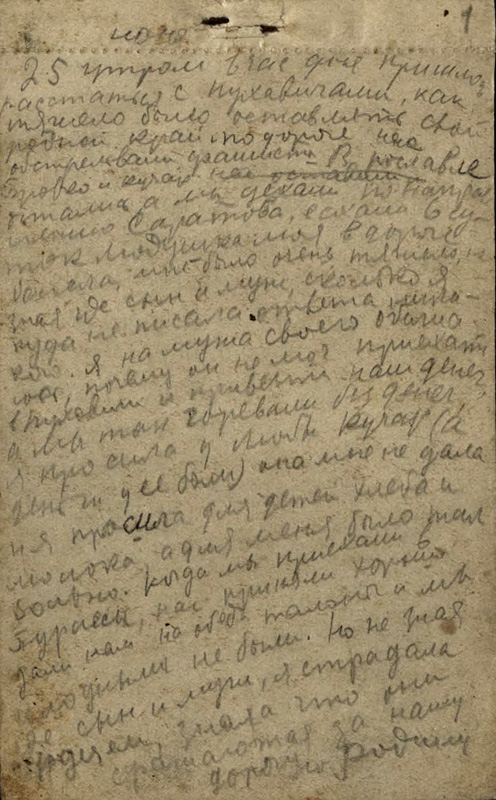 1
июня
25 утром в час дня пришлось
расстаться с Пуховичами, как
тяжело было оставлять свой
родной край по дороге нас
обстреливали фашисты. В рославле
и Кучар нас оставили
остались а мы уехали по направ
лению Саратова, ехали 6 су-
ток Людочка моя в дороге
болела, мне было очень тяжело, не
зная где сын и муж, сколько я
куда не писала ответа ника-
кого. Я на мужа своего обижа
лась, почему он не мог приехать
в Пуховичи и привезти нам денег
а мы так горевали без денег,
я просила у Любы Кучар (а
деньги у её были) она мне не дала
и я просила для детей хлеба и
молока, а для меня было так
больно. Когда мы приехали в
Турки, нас приняли хорошо
дали нам на обед талоны и мы
голодными не были. Но не зная
где сын и муж, я страдала
знала что они
сражаются за нашу
дорогую Родину